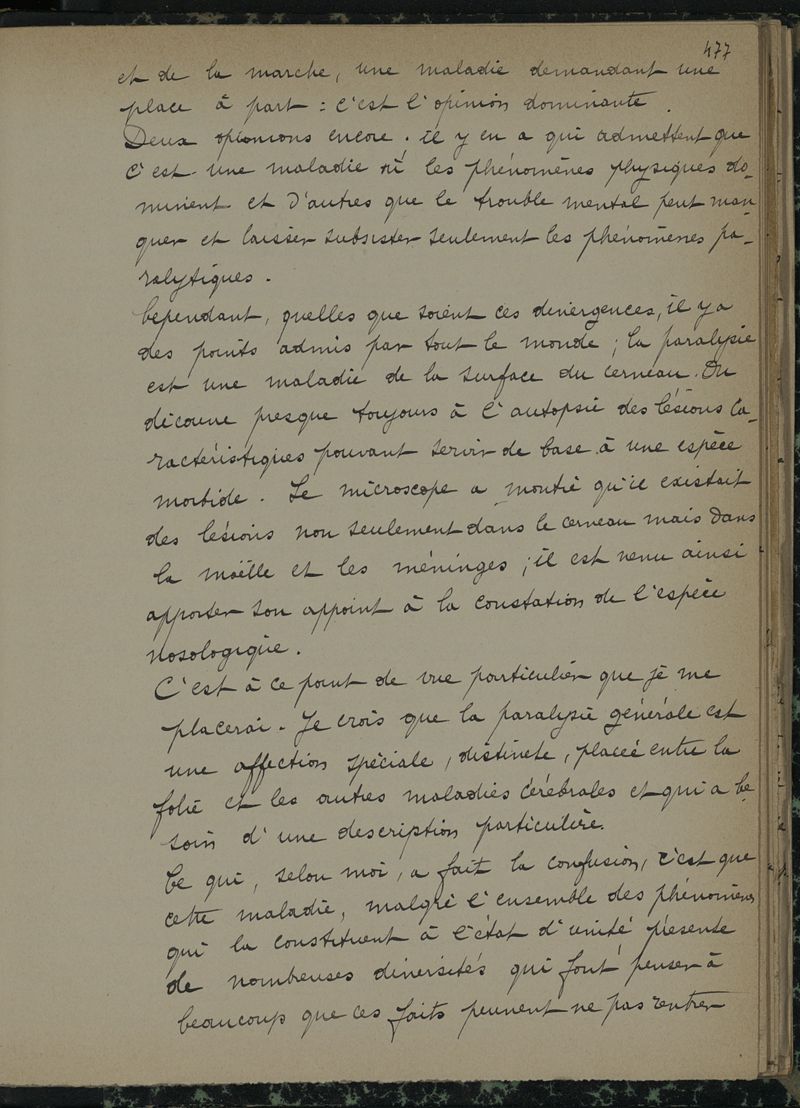 477
et de la marche, une maladie demandant une
place à part : c'est l'opinion dominante.
Deux opinions encore. il y en a qui admettent que
c'est une maladie où les phénomènes physiques do-
minent et d'autres que le trouble mental peut man
quer et laisser subsister seulement les phénomènes pa-
ralytiques.
Cependant, quelles que soient ces divergences, il y a
des points admis par tout le monde ; la paralysie
est une maladie de la surface du cerveau. On
découvre presque toujours à l'autopsie des lésions ca-
ractéristiques pouvant servir de base à une espèce
morbide. Le microscope a montré qu'il existait
des lésions non seulement dans le cerveau mais dans
la moëlle et les méninges ; il est venu ainsi
apporter son appoint à la constation de l'espèce
nosologique.
C'est à ce point de vue particulier que je me
placerai. Je crois que la paralysie générale est
une affection spéciale, distincte, placée entre la
folie et les autres maladies cérébrales et qui a be
soin d'une description particulière.
Ce qui, selon moi, a fait la confusion, c'est que
cette maladie, malgré l'ensemble des phénomènes
qui la constituent à l'état d'unité présente
de nombreuses diversités qui font penser à
beaucoup que ces faits peuvent ne pas rentrer